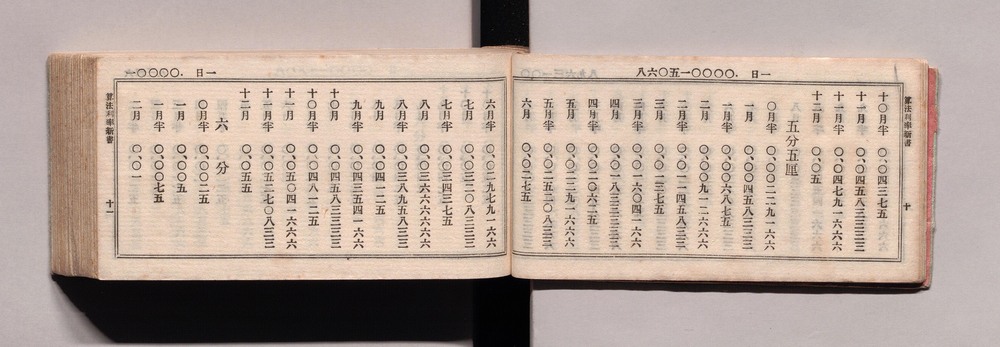 一日 .〇〇〇〇一五〇六八
算法利率新書 十
十〇月半 〇、〇四三七五
十一月 〇、〇四五八三三三三
十一月半 〇、〇四七九一六六六
十二月 〇、〇五
五分五厘
〇月半 〇、〇〇二二九一六六
一月 〇、〇〇四五八三三三
一月半 〇、〇〇六八七五
二月 〇、〇〇九一六六六六
二月半 〇、〇一一四五八三三
三月 〇、〇一三七五
三月半 〇、〇一六〇四一六六
四月 〇、〇一八三三三三三
四月半 〇、〇二〇六二五
五月 〇、〇二二九一六六六
五月半 〇、〇二五二〇八三三
六月 〇、〇二七五
一日 .〇〇〇〇一
六月半 〇、〇二九七九一六六
七月 〇、〇三二〇八三三三
七月半 〇、〇三四三七五
八月 〇、〇三六六六六六六
八月半 〇、〇三八九五八三三
九月 〇、〇四一二五
九月半 〇、〇四三五四一六六
十〇月 〇、〇四五八三三三三
十〇月半 〇、〇四八一二五
十一月 〇、〇五〇四一六六六
十一月半 〇、〇五二七〇八三三
十二月 〇、〇五五
六分
〇月半 〇、〇〇二五
一月 〇、〇〇五
一月半 〇、〇〇七五
二月 〇、〇一
算法利率新書 十一